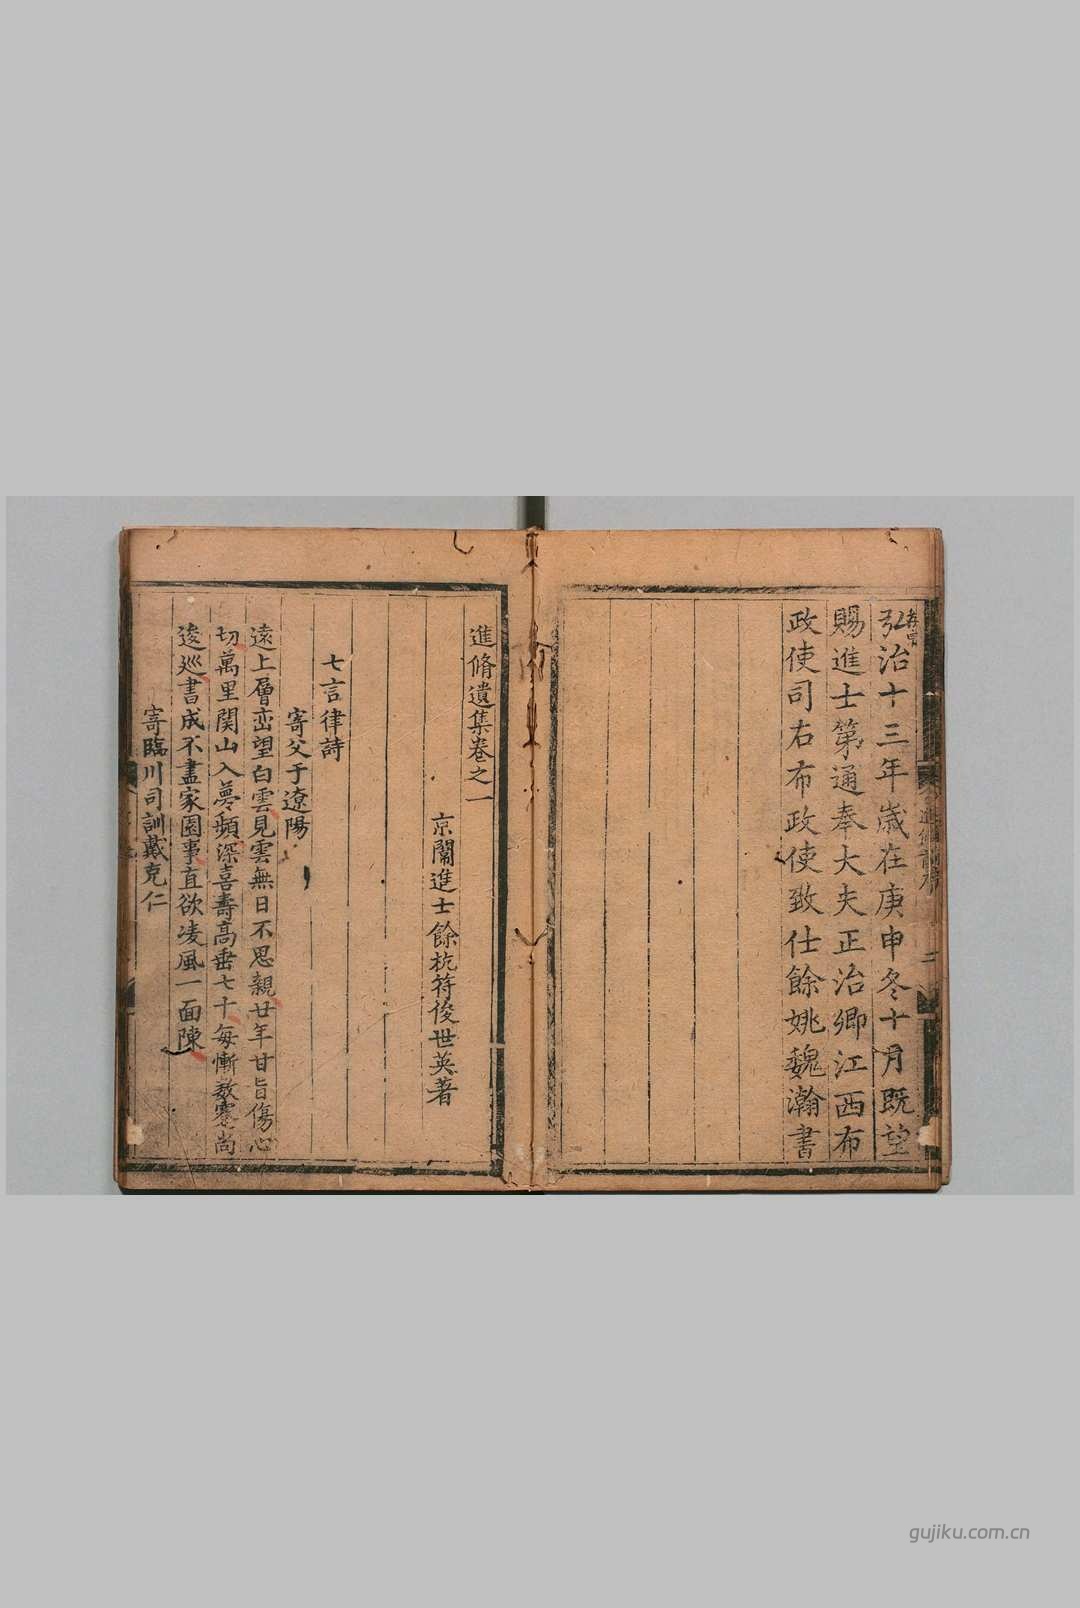 弘治十三年歲在庚申冬十月既望
賜進士第通奉大夫正治卿江西布
政使司右布政使致仕餘姚魏瀚書
進脩遺集卷之一
京闈進士餘杭符俊世英著
七言律詩
寄父于遼陽
遠上層峦望白雲見雲無日不思親廿年甘旨傷心
切萬里関山入夢頻深喜壽高垂七十每慚数寒尚
逡巡書成不盡家園事直欲凌風一面陳
寄臨川司訓戴克仁
gujiku.com.cn